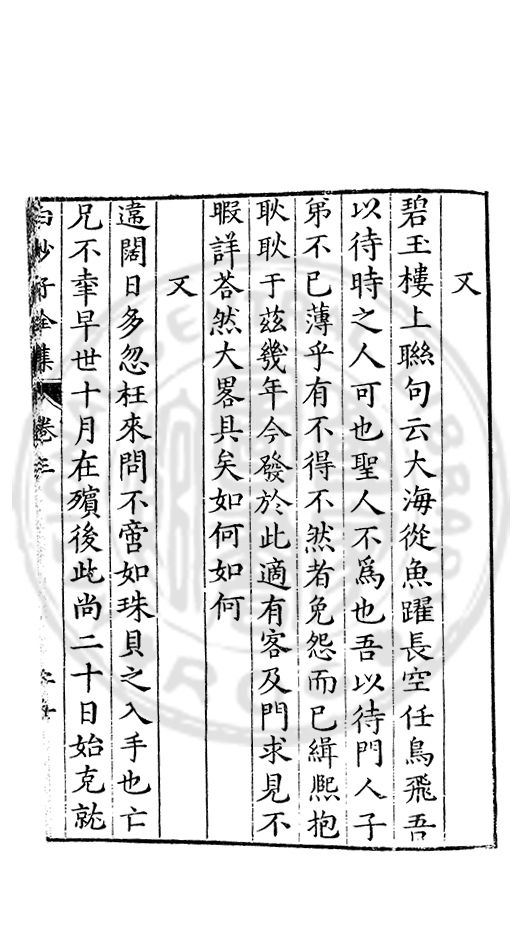 又
碧玉樓上聮句云大海從魚躍長空任鳥飛吾
以待時之人可也聖人不爲也吾以待門人子
弟不已薄乎有不得不然者免怨而已緝熈抱
耿耿于茲幾年今發於此適有客及門求見不
暇詳荅然大畧具矣如何如何
又
違闊日多忽枉來問不啻如珠貝之入手也亡
兄不幸早世十月在殯後此尚二十日始克就
白沙子全集 卷三